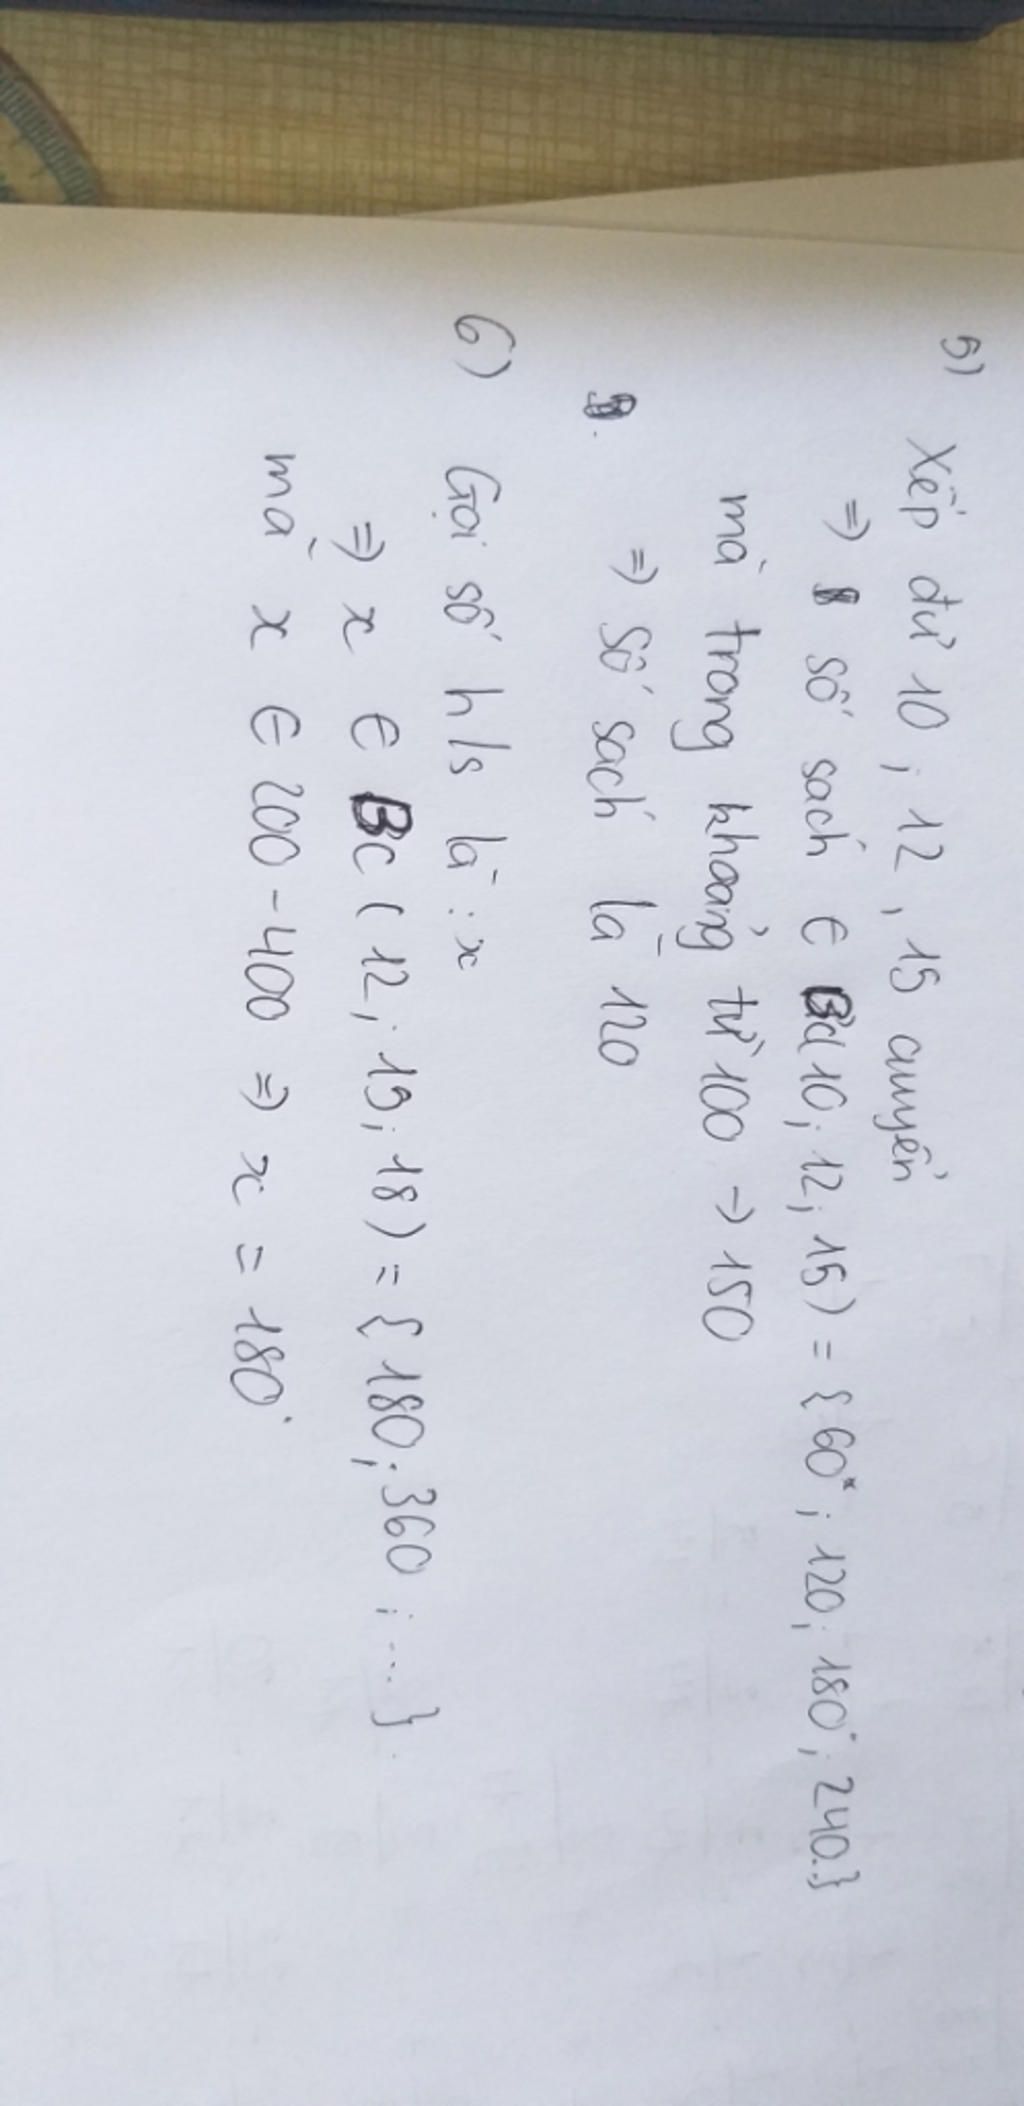 5) Xếp đử 10 ; 12 , 15 quyển
=> số sách ∈ BC(10; 12; 15) = { 60 ; 120; 180 ; 240.}
mà trong khoảng từ 100 → 150
=> số sách là 120
6) Gọi số h/s là : x
=> x ∈ BC ( 12; 15; 18) = { 180; 360 ; ...}
mà x ∈ 200 - 400 => x = 180